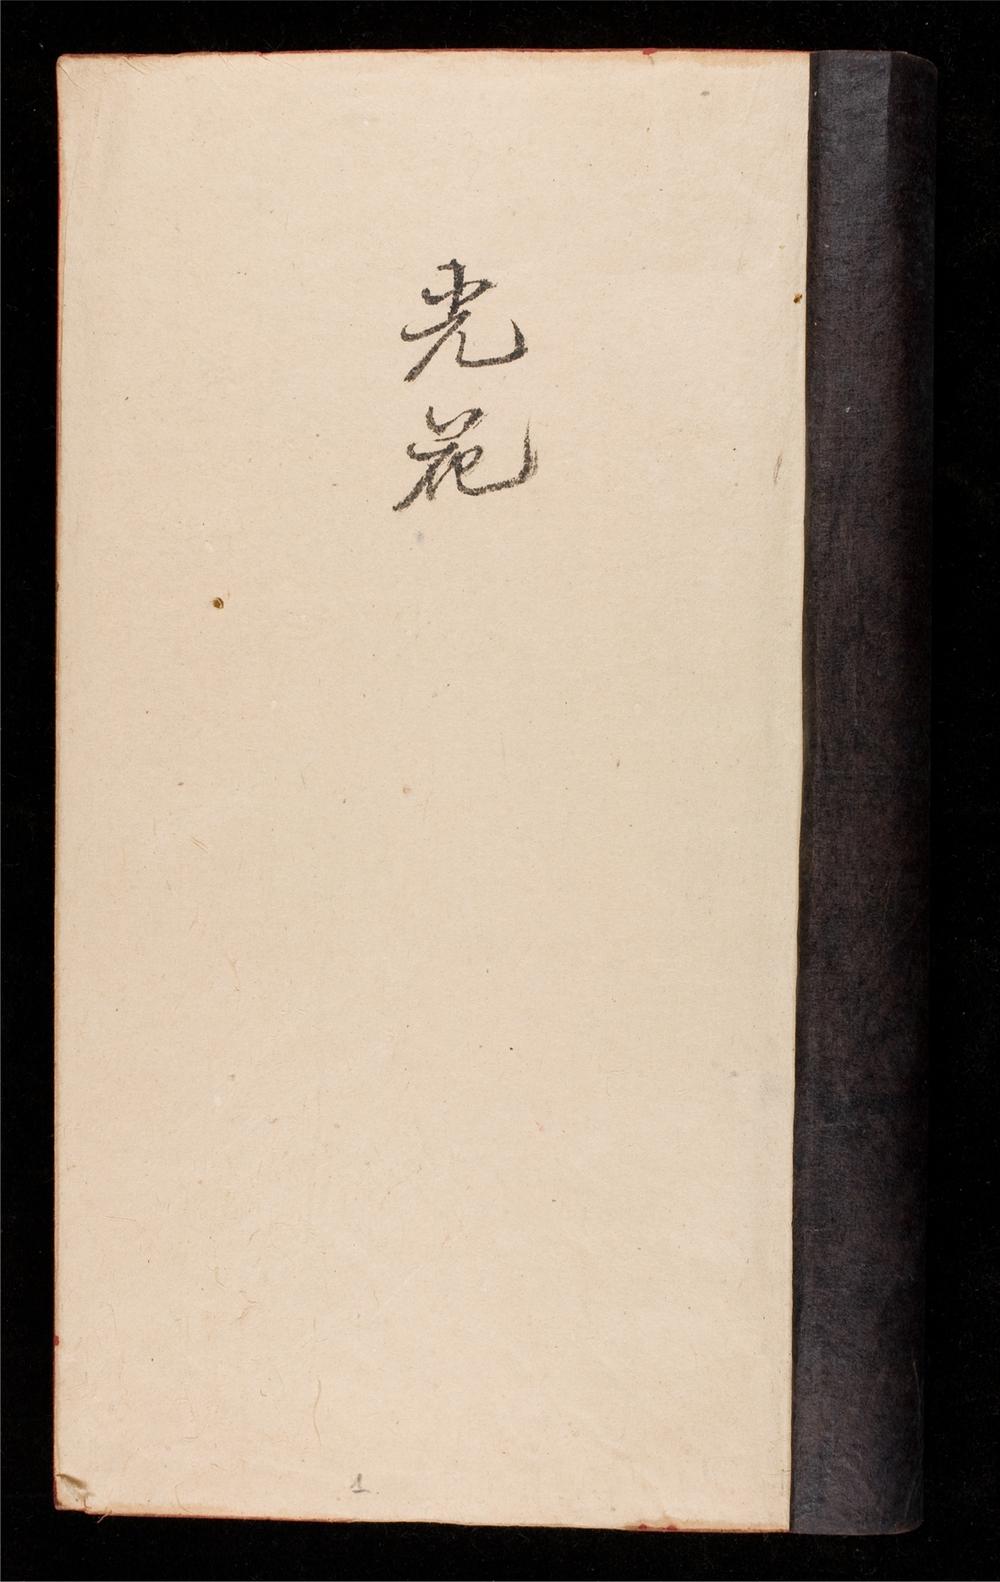 光花
1